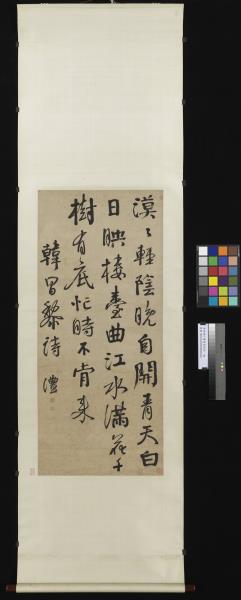 漠〻輕陰晚自開青天白
日映樓臺曲江水滿花千
樹有底忙時不肯來
韓昌黎詩 澧